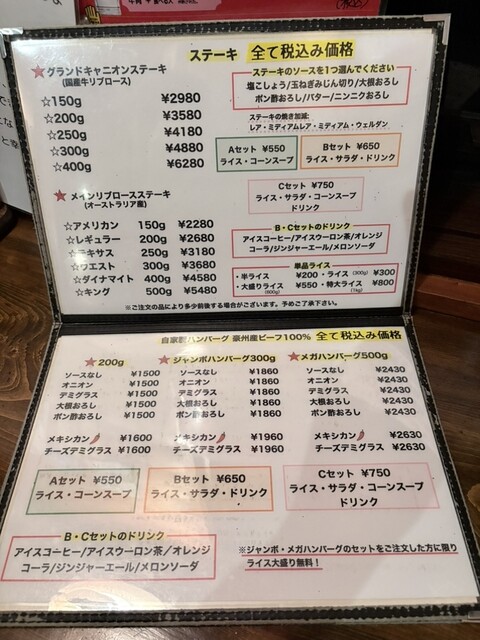 ステーキ 全て税込み価格
★グランドキャニオンステーキ
(国産牛リブロース)
☆150g ¥2980
☆200g ¥3580
☆250g ¥4180
☆300g ¥4880
☆400g ¥6280
ステーキのソースを1つ選んでください
塩こしょう/玉ねぎみじん切り/大根おろし
ポン酢おろし/バター/ニンニクおろし
ステーキの焼き加減:
レア・ミディアムレア・ミディアム・ウェルダン
Aセット ¥550
ライス・コーンスープ
Bセット ¥650
ライス・サラダ・ドリンク
Cセット ¥750
ライス・サラダ・コーンスープ
ドリンク
★メインリブロースステーキ
(オーストラリア産)
☆アメリカン 150g ¥2280
☆レギュラー 200g ¥2680
☆テキサス 250g ¥3180
☆ウエスト 300g ¥3680
☆ダイナマイト 400g ¥4580
☆キング 500g ¥5480
B・Cセットのドリンク
アイスコーヒー/アイスウーロン茶/オレンジ
コーラ/ジンジャーエール/メロンソーダ
単品ライス
・半ライス ¥200 ・ライス (300g) ¥300
・大盛りライス (600g) ¥550 ・特大ライス (1kg) ¥800
※ご注文の品により多少前後する場合がございます。予めご了承下さい。
自家製ハンバーグ 豪州産ビーフ100% 全て税込み価格
★200g
ソースなし ¥1500
オニオン ¥1500
デミグラス ¥1500
大根おろし ¥1500
ポン酢おろし ¥1500
メキシカン ¥1600
チーズデミグラス ¥1600
★ジャンボハンバーグ300g
ソースなし ¥1860
オニオン ¥1860
デミグラス ¥1860
大根おろし ¥1860
ポン酢おろし ¥1860
メキシカン ¥1960
チーズデミグラス ¥1960
★メガハンバーグ500g
ソースなし ¥2430
オニオン ¥2430
デミグラス ¥2430
大根おろし ¥2430
ポン酢おろし ¥2430
メキシカン ¥2630
チーズデミグラス ¥2630
Aセット ¥550
ライス・コーンスープ
Bセット ¥650
ライス・サラダ・ドリンク
Cセット ¥750
ライス・サラダ・コーンスープ
ドリンク
B・Cセットのドリンク
アイスコーヒー/アイスウーロン茶/オレンジ
コーラ/ジンジャーエール/メロンソーダ
※ジャンボ・メガハンバーグのセットをご注文した方に限り
ライス大盛り無料！